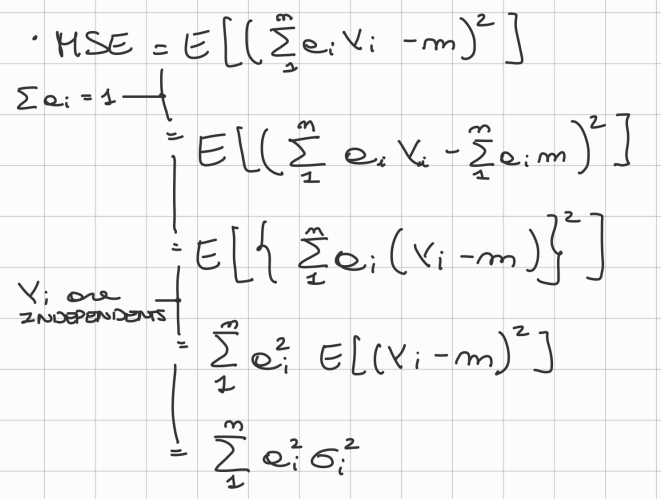 · MSE = E[(∑₁ⁿ aᵢ Yᵢ − m)²]
∑ aᵢ = 1
= E[(∑₁ⁿ aᵢ Yᵢ − ∑₁ⁿ aᵢ m)²]
= E[{∑₁ⁿ aᵢ (Yᵢ − m)}²]
Yᵢ are
INDEPENDENTS
= ∑₁ⁿ aᵢ² E[(Yᵢ − m)²]
= ∑₁ⁿ aᵢ² σᵢ²